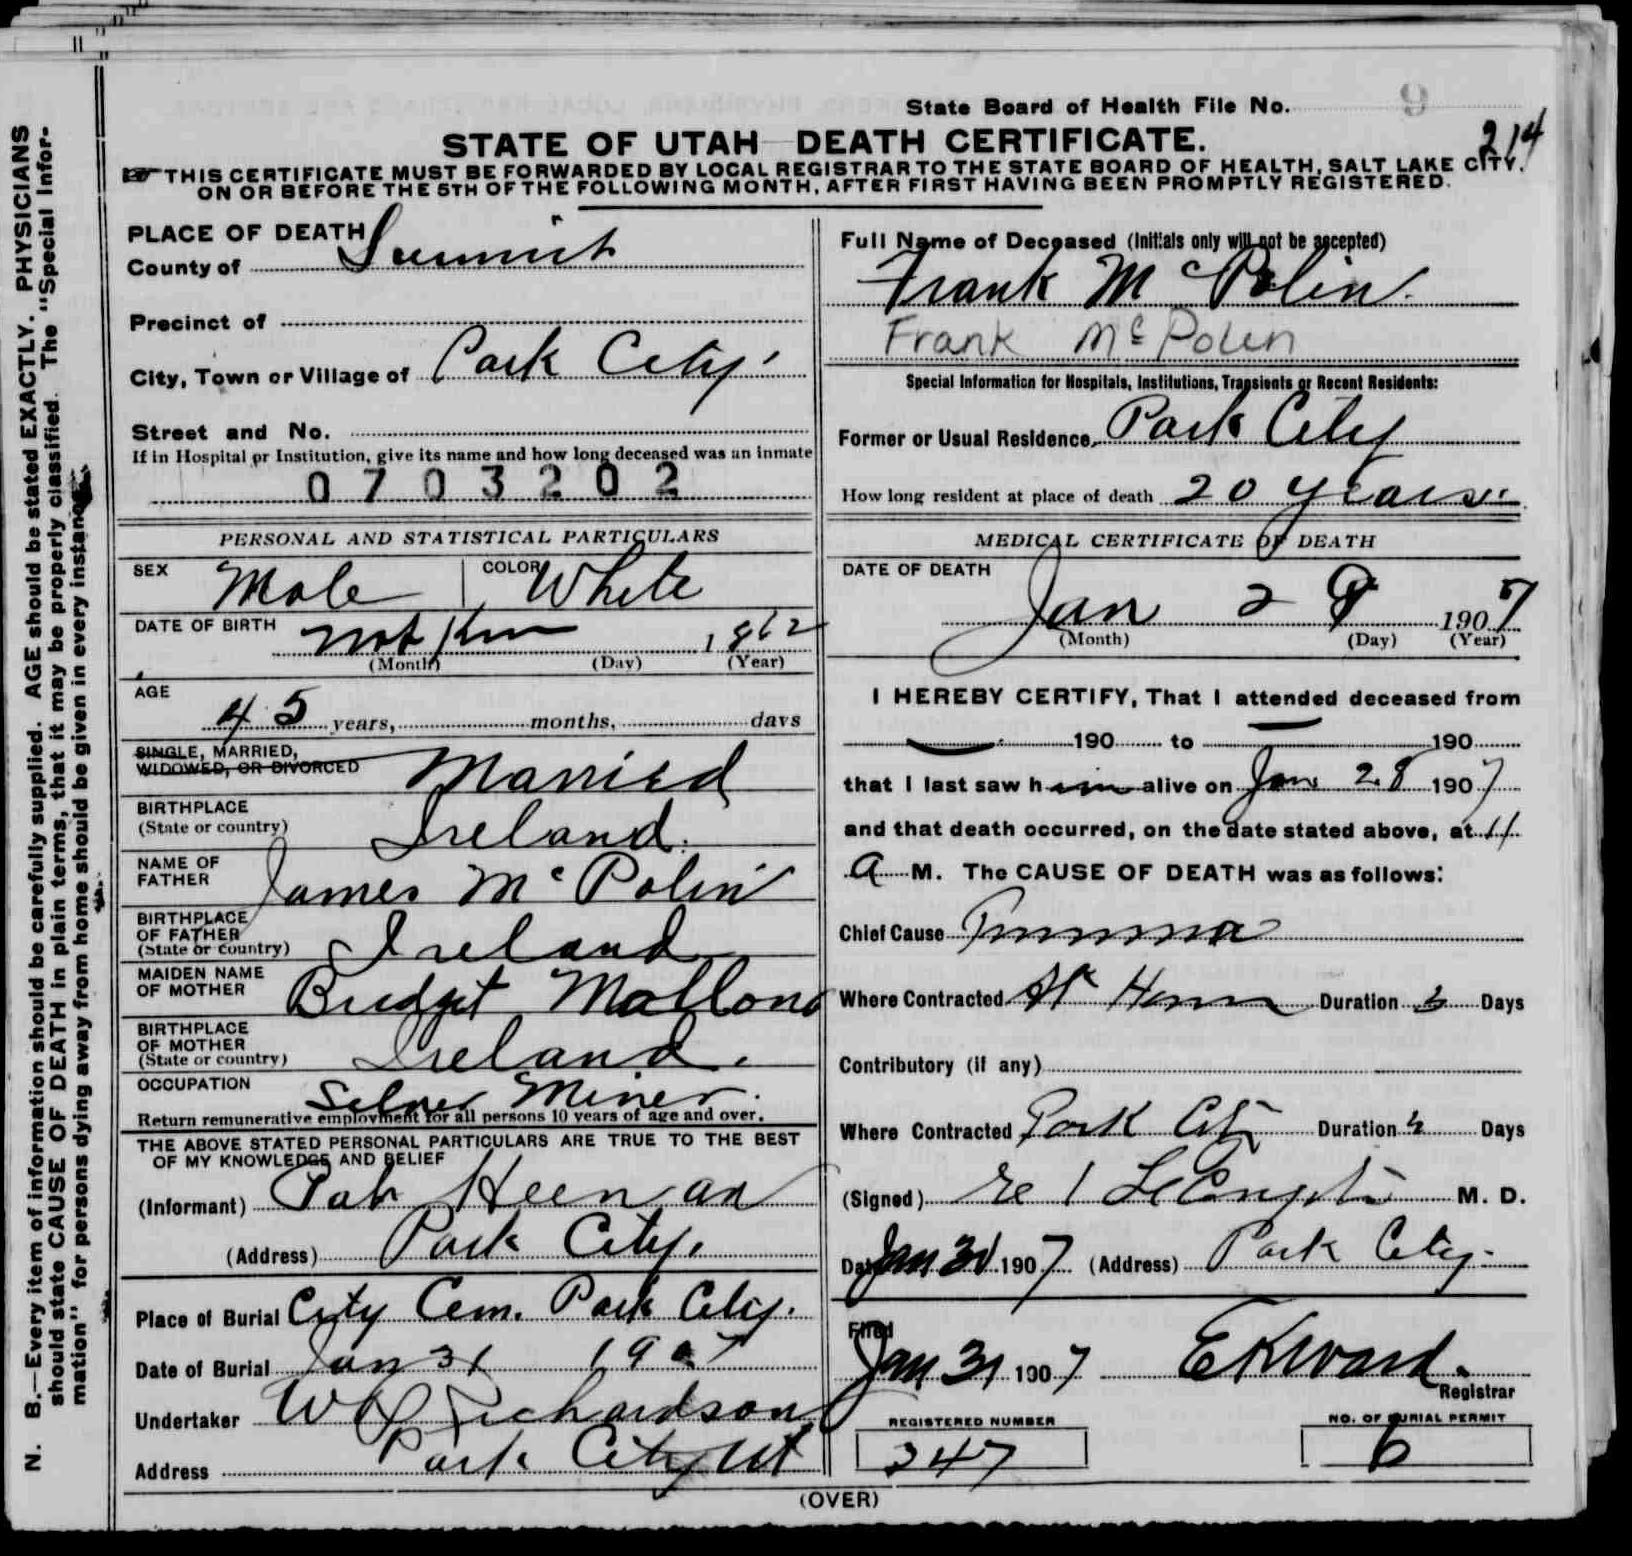 State Board of Health File No. 9
214
STATE OF UTAH DEATH CERTIFICATE.
THIS CERTIFICATE MUST BE FORWARDED BY LOCAL REGISTRAR TO THE STATE BOARD OF HEALTH, SALT LAKE CITY,
ON OR BEFORE THE 5TH OF THE FOLLOWING MONTH, AFTER FIRST HAVING BEEN PROMPTLY REGISTERED.
N. B.—Every item of information should be carefully supplied. AGE should be stated EXACTLY. PHYSICIANS
should state CAUSE OF DEATH in plain terms, that it may be properly classified. The "Special Infor-
mation" for persons dying away from home should be given in every instance.
PLACE OF DEATH
County of Summit
Precinct of
City, Town or Village of Park City
Street and No.
If in Hospital or Institution, give its name and how long deceased was an inmate
0703202
PERSONAL AND STATISTICAL PARTICULARS
SEX Male COLOR White
DATE OF BIRTH Not Kn 1862
(Month) (Day) (Year)
AGE
45 years, months, days
SINGLE, MARRIED,
WIDOWED, OR DIVORCED Married
BIRTHPLACE
(State or country) Ireland.
NAME OF
FATHER James McPolin
BIRTHPLACE
OF FATHER
(State or country) Ireland
MAIDEN NAME
OF MOTHER Bridget Mallone
BIRTHPLACE
OF MOTHER
(State or country) Ireland.
OCCUPATION Silver Miner.
Return remunerative employment for all persons 10 years of age and over.
THE ABOVE STATED PERSONAL PARTICULARS ARE TRUE TO THE BEST
OF MY KNOWLEDGE AND BELIEF
(Informant) Pat Heenan
(Address) Park City.
Place of Burial City Cem. Park City.
Date of Burial Jan 31 1907
Undertaker Richardson
Address Park City Ut
Full Name of Deceased (Initials only will not be accepted)
Frank McPolin.
Frank McPolin
Special Information for Hospitals, Institutions, Transients or Recent Residents:
Former or Usual Residence, Park City
How long resident at place of death 20 years.
MEDICAL CERTIFICATE OF DEATH
DATE OF DEATH
Jan 28 1907
(Month) (Day) (Year)
I HEREBY CERTIFY, That I attended deceased from
190 to 190
that I last saw him alive on Jan 28 1907
and that death occurred, on the date stated above, at 11
A M. The CAUSE OF DEATH was as follows:
Chief Cause
Where Contracted At Home Duration 3 Days
Contributory (if any)
Where Contracted Park City Duration Days
(Signed) M. D.
Date Jan 31 1907 (Address) Park City.
Filed
Jan 31 1907 E K Ward.
Registrar
REGISTERED NUMBER
347
NO. OF BURIAL PERMIT
6
(OVER)